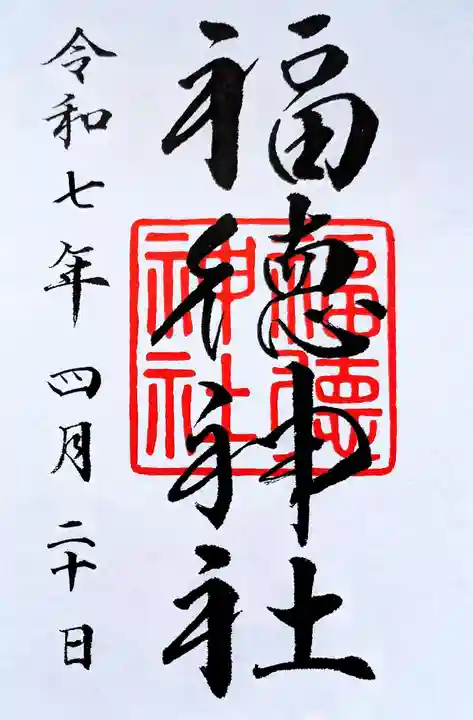 福徳神社
福徳神社
令和七年四月二十日